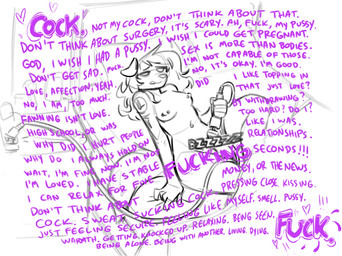 COCK. NOT MY COCK, DON'T THINK ABOUT THAT.
DON'T THINK ABOUT SURGERY, IT'S SCARY. AH, FUCK, MY PUSSY.
GOD, I WISH I HAD A PUSSY. I WISH I COULD GET PREGNANT.
DON'T GET SAD. SEX IS MORE THAN BODIES.
LOVE, AFFECTION, YEAH. I'M NOT CAPABLE OF THOSE.
NO, I AM. TOO MUCH. NO, IT'S OKAY. I'M GOOD.
FAWNING ISN'T LOVE. DID I LIKE TOPPING IN
HIGH SCHOOL, OR WAS THAT JUST LOVE?
WHY DID I HURT PEOPLE BY WITHDRAWING?
WHY DO I ALWAYS HOLD ON TOO HARD? DO I?
WAIT, I'M FINE NOW. I'M NOT LIKE I WAS.
I'M LOVED. I HAVE STABLE RELATIONSHIPS.
I CAN RELAX FOR FIVE FUCKING SECONDS!!!
BZZZZZZ
DON'T THINK ABOUT MONEY, OR THE NEWS.
COCK, SWEAT, FUCKING, PRESSING CLOSE, KISSING.
JUST FEELING SECURE. FEELING LIKE MYSELF. SMELL. PUSSY.
WARMTH. GETTING KNOCKED UP. RELAXING. BEING SEEN.
BEING ALONE. BEING WITH ANOTHER. LIVING. DYING.
FUCK.